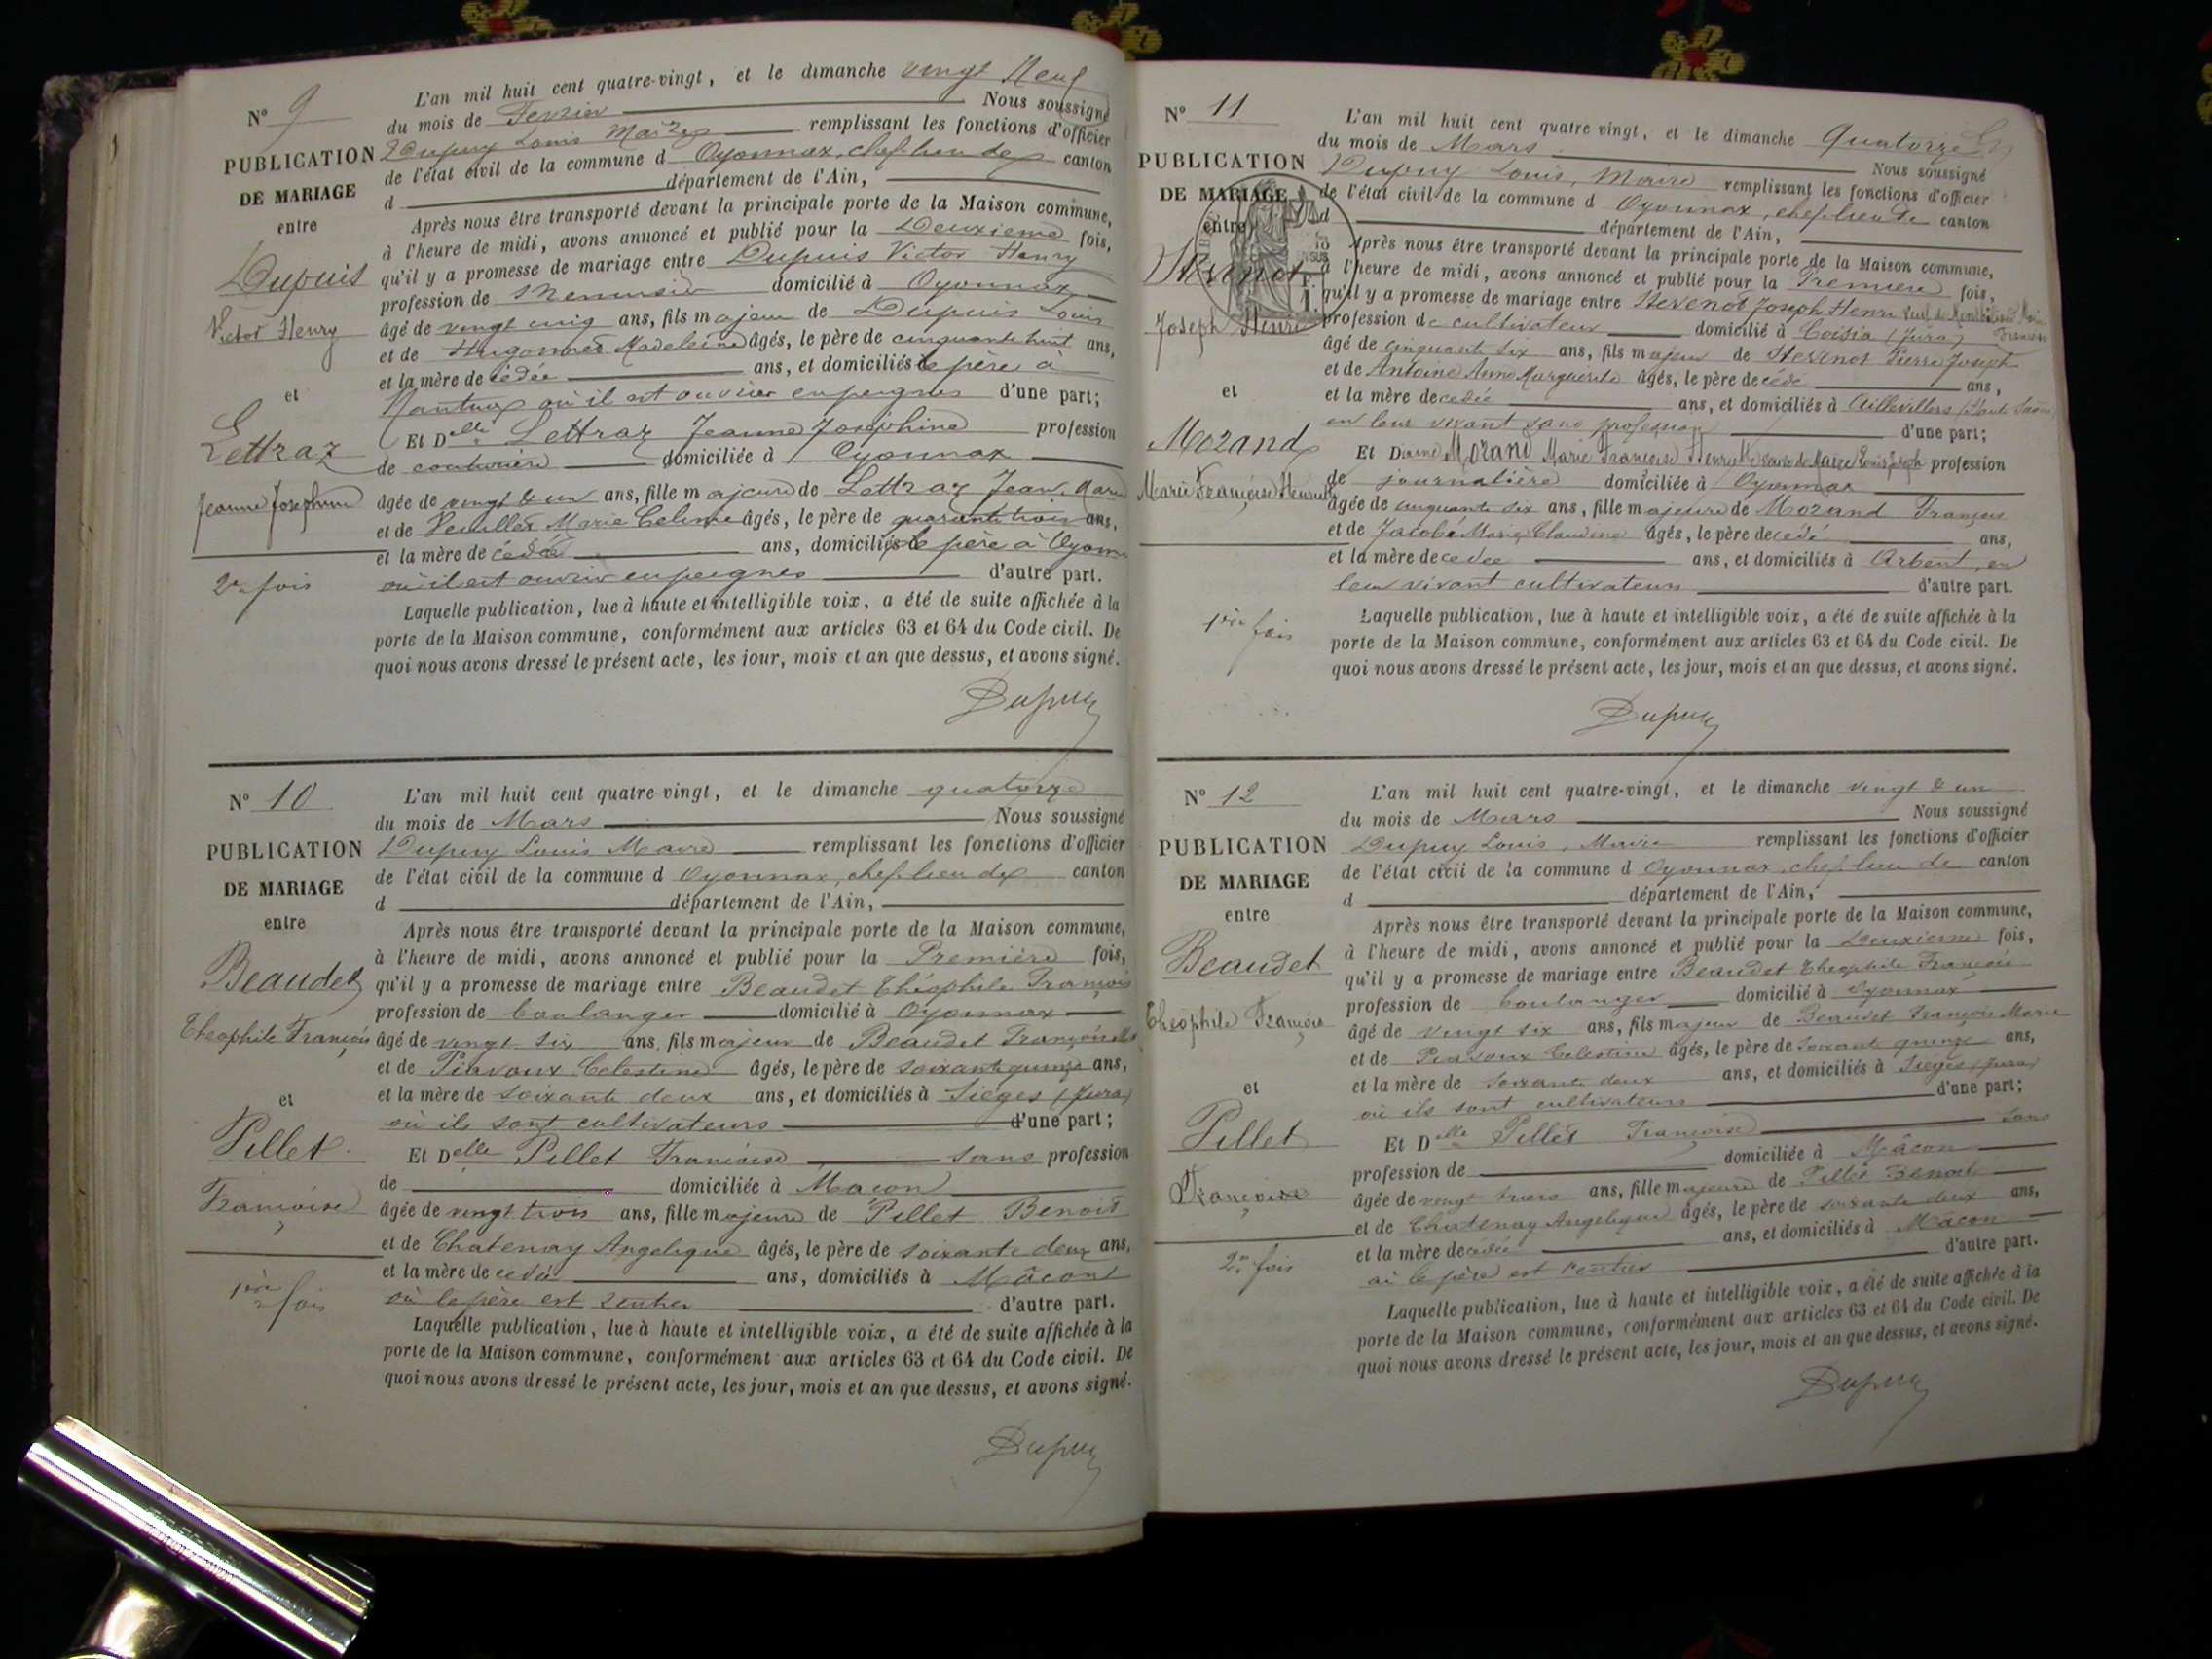 N° 9
PUBLICATION
DE MARIAGE
entre
Dupuis
Victor Henry
et
Lettraz
Jeanne Josephine
2e fois
L'an mil huit cent quatre-vingt, et le dimanche vingt Neuf
du mois de Fevrier Nous soussigné
Dupuy Louis Maire remplissant les fonctions d'officier
de l'état civil de la commune d Oyonnax, chef-lieu de canton
d département de l'Ain,
Après nous être transporté devant la principale porte de la Maison commune,
à l'heure de midi, avons annoncé et publié pour la Deuxieme fois,
qu'il y a promesse de mariage entre Dupuis Victor Henry
profession de menuisier domicilié à Oyonnax
âgé de vingt cinq ans, fils majeur de Dupuis Louis
et de Madeleine âgés, le père de cinquante huit ans,
et la mère decédée ans, et domiciliés le père à
Nantua où il est ouvrier en peignes d'une part;
Et Delle Lettraz Jeanne Joséphine profession
de couturière domiciliée à Oyonnax
âgée de vingt & un ans, fille majeure de Lettraz Jean Marie
et de Marie Celine âgés, le père de quarante trois ans,
et la mère decédée ans, domiciliés le père à Oyonnax
où il est ouvrier en peignes d'autre part.
Laquelle publication, lue à haute et intelligible voix, a été de suite affichée à la
porte de la Maison commune, conformément aux articles 63 et 64 du Code civil. De
quoi nous avons dressé le présent acte, les jour, mois et an que dessus, et avons signé.
Dupuy
N° 10
PUBLICATION
DE MARIAGE
entre
Beaudet
Théophile François
et
Pillet
Françoise
1ère fois
L'an mil huit cent quatre-vingt, et le dimanche quatorze
du mois de Mars Nous soussigné
Dupuy Louis Maire remplissant les fonctions d'officier
de l'état civil de la commune d Oyonnax, chef-lieu de canton
d département de l'Ain,
Après nous être transporté devant la principale porte de la Maison commune,
à l'heure de midi, avons annoncé et publié pour la Première fois,
qu'il y a promesse de mariage entre Beaudet Théophile François
profession de boulanger domicilié à Oyonnax
âgé de vingt six ans, fils majeur de Beaudet François Mie
et de Celestine âgés, le père de soixante quinze ans,
et la mère de soixante deux ans, et domiciliés à Siéges (Jura)
où ils sont cultivateurs d'une part;
Et Delle Pillet Françoise sans profession
de domiciliée à Macon
âgée de vingt trois ans, fille majeure de Pillet Benoit
et de Chatenay Angelique âgés, le père de soixante deux ans,
et la mère decedée ans, domiciliés à Mâcon
où le père est rentier d'autre part.
Laquelle publication, lue à haute et intelligible voix, a été de suite affichée à la
porte de la Maison commune, conformément aux articles 63 et 64 du Code civil. De
quoi nous avons dressé le présent acte, les jour, mois et an que dessus, et avons signé.
Dupuy
N° 11
PUBLICATION
DE MARIAGE
entre
Stevenot
Joseph Henri
et
Morand
Marie Françoise Henriette
1ère fois
L'an mil huit cent quatre vingt, et le dimanche Quatorze
du mois de Mars Nous soussigné
Dupuy Louis, Maire remplissant les fonctions d'officier
de l'état civil de la commune d Oyonnax, chef-lieu de canton
d département de l'Ain,
Après nous être transporté devant la principale porte de la Maison commune,
à l'heure de midi, avons annoncé et publié pour la Premiere fois,
qu'il y a promesse de mariage entre Stevenot Joseph Henri veuf de
profession de cultivateur domicilié à Coisia (Jura)
âgé de cinquante six ans, fils majeur de Stevenot Pierre Joseph
et de Antoine Anne Marguerite âgés, le père decédé ans,
et la mère decedée ans, et domiciliés à Aillevillers (Haute Saône)
en leur vivant sans profession d'une part;
Et Dame Morand Marie Françoise Henriette veuve de profession
de journalière domiciliée à Oyonnax
âgée de cinquante six ans, fille majeure de Morand François
et de Jacobé Marie Claudine âgés, le père decédé ans,
et la mère decedée ans, et domiciliés à Arbent, en
leur vivant cultivateurs d'autre part.
Laquelle publication, lue à haute et intelligible voix, a été de suite affichée à la
porte de la Maison commune, conformément aux articles 63 et 64 du Code civil. De
quoi nous avons dressé le présent acte, les jour, mois et an que dessus, et avons signé.
Dupuy
N° 12
PUBLICATION
DE MARIAGE
entre
Beaudet
Théophile François
et
Pillet
Françoise
2e fois
L'an mil huit cent quatre-vingt, et le dimanche vingt & un
du mois de Mars Nous soussigné
Dupuy Louis, Maire remplissant les fonctions d'officier
de l'état civil de la commune d Oyonnax, chef-lieu de canton
d département de l'Ain,
Après nous être transporté devant la principale porte de la Maison commune,
à l'heure de midi, avons annoncé et publié pour la Deuxieme fois,
qu'il y a promesse de mariage entre Beaudet Théophile François
profession de boulanger domicilié à Oyonnax
âgé de vingt six ans, fils majeur de Beaudet François Marie
et de Celestine âgés, le père de soixante quinze ans,
et la mère de soixante deux ans, et domiciliés à Siéges (Jura)
où ils sont cultivateurs d'une part;
Et Delle Pillet Françoise sans
profession de domiciliée à Mâcon
âgée de vingt trois ans, fille majeure de Pillet Benoit
et de Chatenay Angelique âgés, le père de soixante deux ans,
et la mère decédée ans, et domiciliés à Mâcon
où le père est rentier d'autre part.
Laquelle publication, lue à haute et intelligible voix, a été de suite affichée à la
porte de la Maison commune, conformément aux articles 63 et 64 du Code civil. De
quoi nous avons dressé le présent acte, les jour, mois et an que dessus, et avons signé.
Dupuy